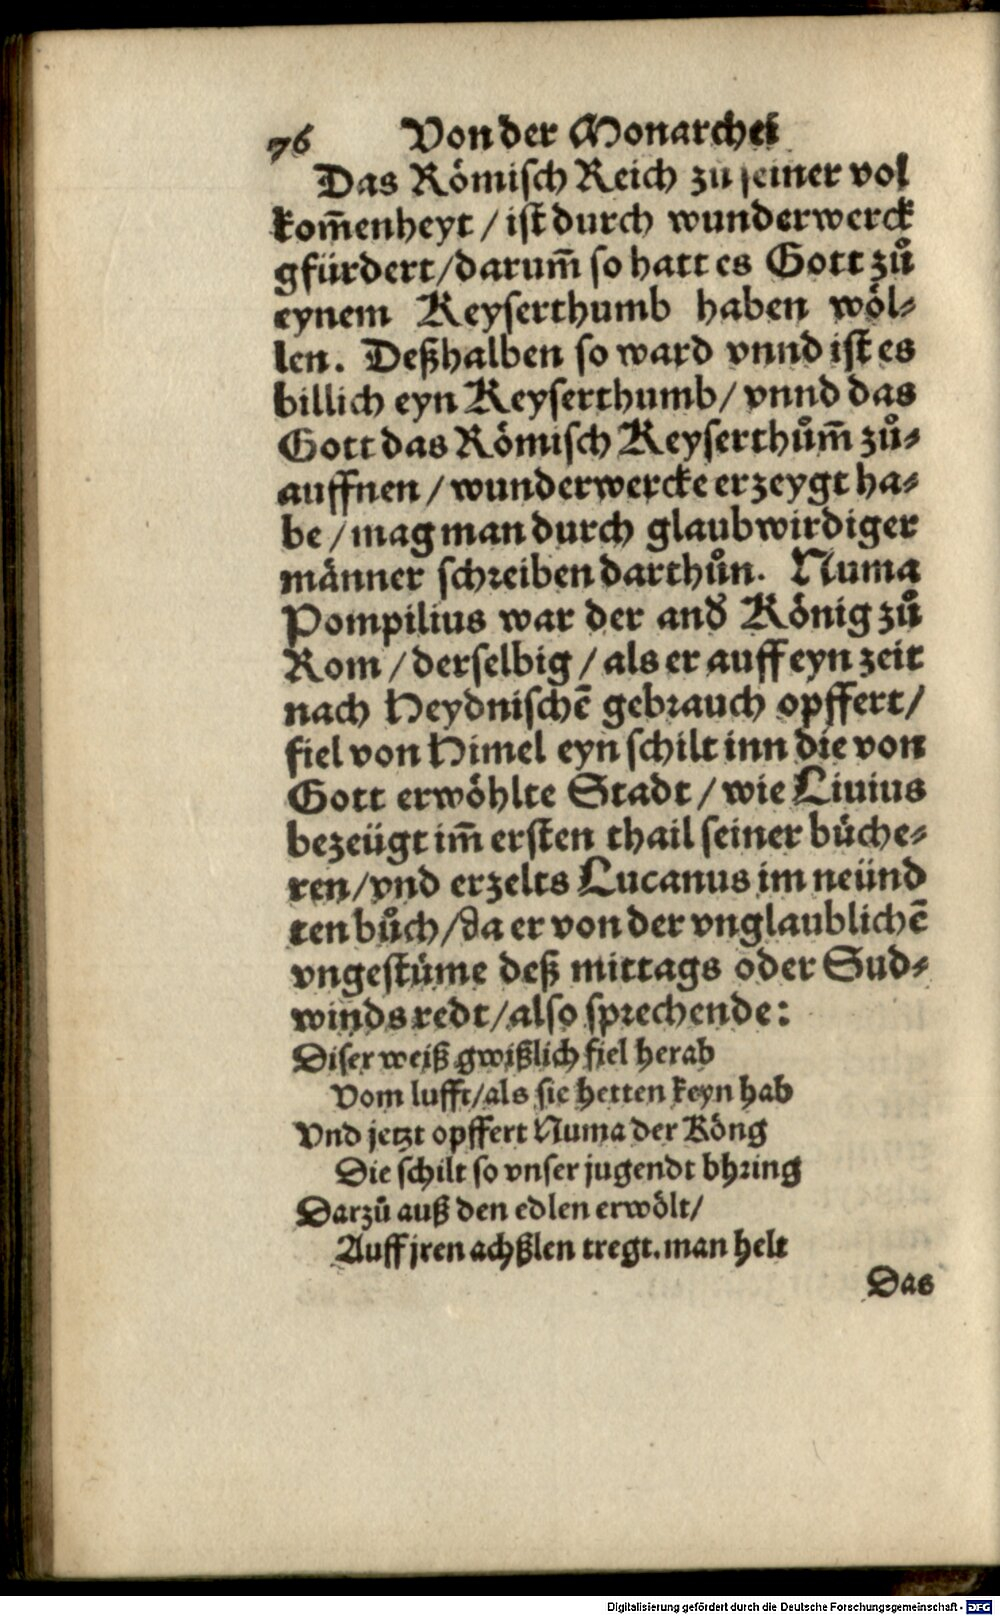 76 Von der Monarchei
Das Römisch Reich zu seiner vol
kom̃enheyt / ist durch wunderwerck
gfürdert / darum̃ so hatt es Gott zů
eynem Keyserthumb haben wöl⸗
len. Deßhalben so ward vnnd ist es
billich eyn Keyserthumb / vnnd das
Gott das Römisch Keyserthům̃ zů⸗
auffnen / wunderwercke erzeygt ha⸗
be / mag man durch glaubwirdiger
männer schreiben darthůn. Numa
Pompilius war der and̃ König zů
Rom / derselbig / als er auff eyn zeit
nach Heydnischẽ gebrauch opffert /
fiel von Himel eyn schilt inn die von
Gott erwöhlte Stadt / wie Liuius
bezeügt im̃ ersten thail seiner büche⸗
ren / vnd erzelts Lucanus im neünd
ten bůch / da er von der vnglaublichẽ
vngestüme deß mittags oder Sud⸗
winds redt / also sprechende:
Diser weiß gwißlich fiel herab
Vom lufft / als sie hetten keyn hab
Vnd jetzt opffert Numa der Köng
Die schilt so vnser jugendt bhring
Darzů auß den edlen erwölt /
Auff jren achßlen tregt. man helt
Das
Digitalisierung gefördert durch die Deutsche Forschungsgemeinschaft - DFG